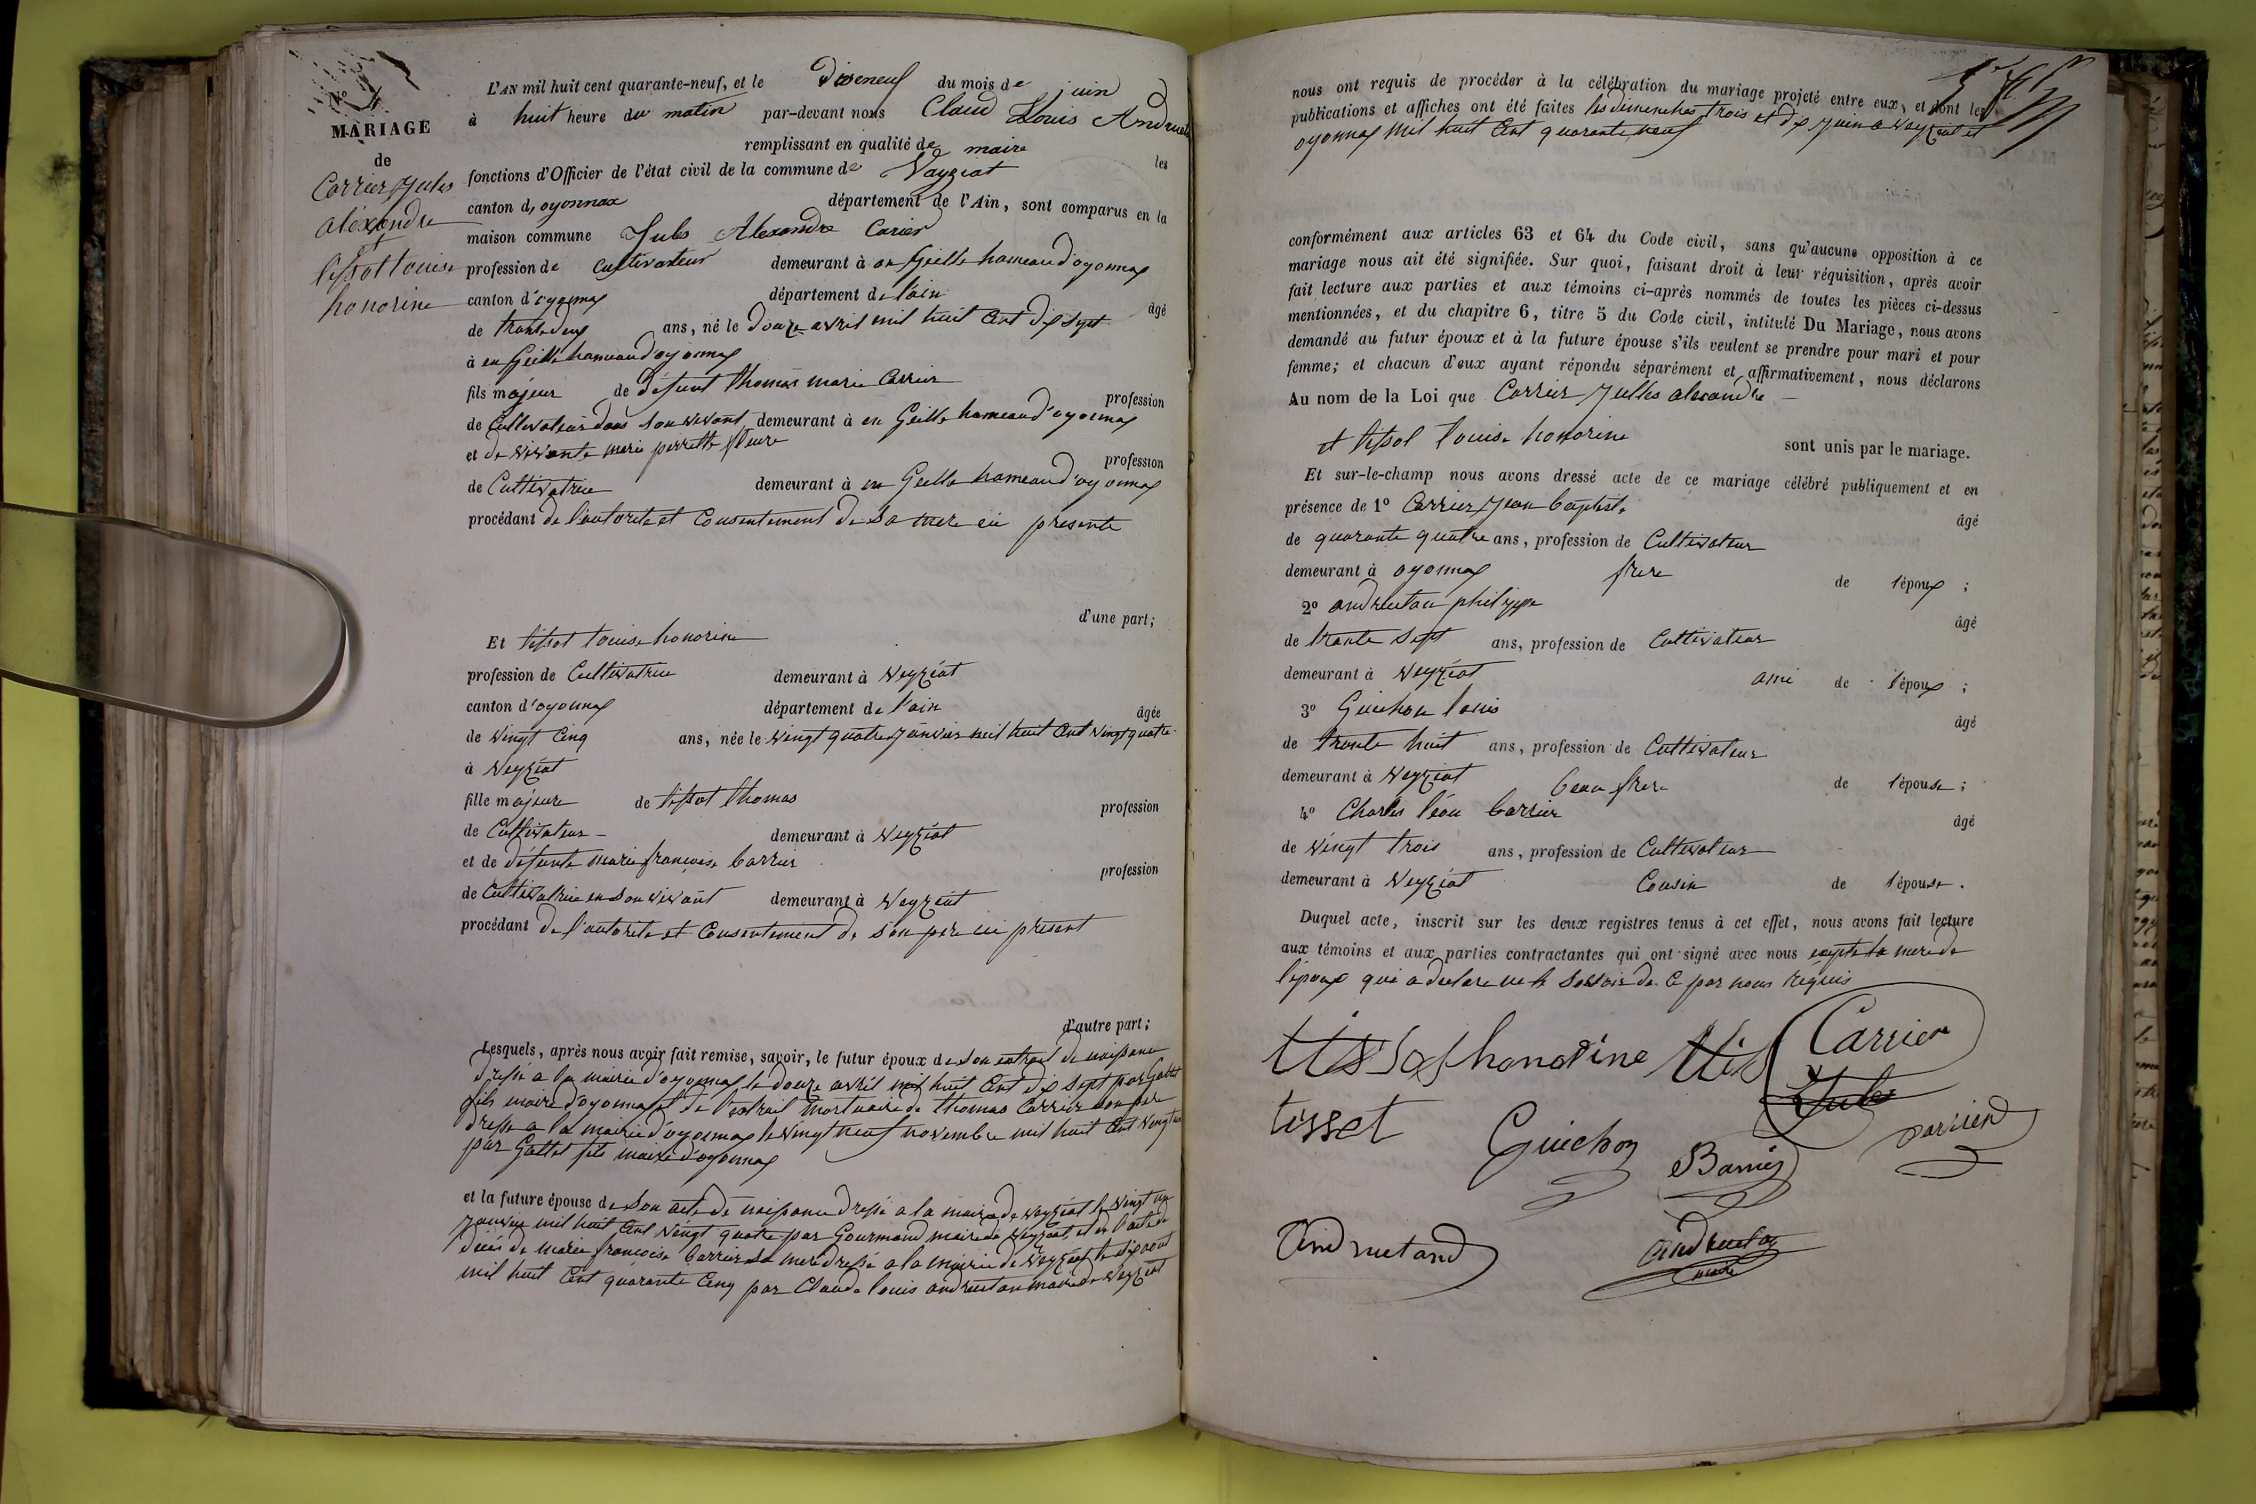 N° 4
MARIAGE
de
Carrier Jules
alexandre
et
tissot louise
honorine
L'AN mil huit cent quarante-neuf, et le dixneuf du mois de juin
à huit heure du matin par-devant nous Claud Louis Andruetan
remplissant en qualité de maire les
fonctions d'Officier de l'état civil de la commune de Vayziat
canton d, oyonnax département de l'Ain, sont comparus en la
maison commune Jules Alexandre Carier
profession de Cultivateur demeurant à en Geille hameau d'oyonnax
canton d'oyonnax département de l'ain âgé
de trente deux ans, né le douze avril mil huit Cent dix sept
à en Geille hameau d'oyonnax
fils majeur de défunt thomas marie Carrier profession
de Cultivateur dans son vivant demeurant à en Geille hameau d'oyonnax
et de vivante marie perrette fleure profession
de Cultivatrice demeurant à en Geille hameau d'oyonnax
procédant de l'autorite et Consentement de sa mere ici presente
d'une part;
Et tissot louise honorine
profession de Cultivatrice demeurant à Veyziat
canton d'oyonnax département de l'ain âgée
de vingt Cinq ans, née le vingt quatre janvier mil huit Cent vingt quatre
à Veyziat
fille majeure de tissot thomas profession
de Cultivateur demeurant à Veyziat
et de défunte marie françoise Carrier profession
de Cultivatrice en son vivant demeurant à Veyziat
procédant de l'autorite et Consentement de son pere ici present
d'autre part;
Lesquels, après nous avoir fait remise, savoir, le futur époux de son extrait de naissance
dressé a la mairie d'oyonnax le douze avril mil huit Cent dix sept par Gattet
fils maire d'oyonnax et de l'extrait mortuaire de thomas Carrier son per
dressé a la mairie d'oyonnax le vingt neuf novembre mil huit Cent vingt
par Gattet fils maire d'oyonnax
et la future épouse de son acte de naissance dressé a la mairie de veyziat le vingt
janvier mil huit Cent vingt quatre par Gourmand maire de Veyziat, et de l'acte de
décés de marie françoise Carrier sa mere dressé a la mairie de Veyziat le dix aout
mil huit Cent quarante Cinq par Claude louis andruetan maire de Veyziat
nous ont requis de procéder à la célébration du mariage projeté entre eux, et dont les
publications et affiches ont été faites les dimenches trois et dix juin a Veyziat et
oyonnax mil huit Cent quarante neuf
conformément aux articles 63 et 64 du Code civil, sans qu'aucune opposition à ce
mariage nous ait été signifiée. Sur quoi, faisant droit à leur réquisition, après avoir
fait lecture aux parties et aux témoins ci-après nommés de toutes les pièces ci-dessus
mentionnées, et du chapitre 6, titre 5 du Code civil, intitulé Du Mariage, nous avons
demandé au futur époux et à la future épouse s'ils veulent se prendre pour mari et pour
femme; et chacun d'eux ayant répondu séparément et affirmativement, nous déclarons
Au nom de la Loi que Carrier Julles alexandre
et tissot louise honorine sont unis par le mariage.
Et sur-le-champ nous avons dressé acte de ce mariage célébré publiquement et en
présence de 1° Carrier Jean baptiste âgé
de quarante quatre ans, profession de Cultivateur
demeurant à oyonnax frere de l'époux ;
2° andruetan philippe âgé
de trente sept ans, profession de Cultivateur
demeurant à Veyziat ami de l'époux ;
3° Guichon louis âgé
de trente huit ans, profession de Cultivateur
demeurant à Veyziat beau frere de l'épouse ;
4° Charles léon Carrier âgé
de vingt trois ans, profession de Cultivateur
demeurant à Veyziat Cousin de l'épouse.
Duquel acte, inscrit sur les deux registres tenus à cet effet, nous avons fait lecture
aux témoins et aux parties contractantes qui ont signé avec nous exepte la mere de
l'époux qui a declare ne le savoir de Ce par nous requis
tissot honorine Carrier
Jules
tisset Guichon Carrier
Andruetand Andruetan
maire